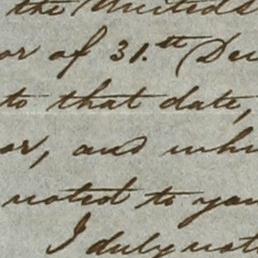 the United S
or of 31.th Dec
to that date,
or, and whi
noted to you
I duly not